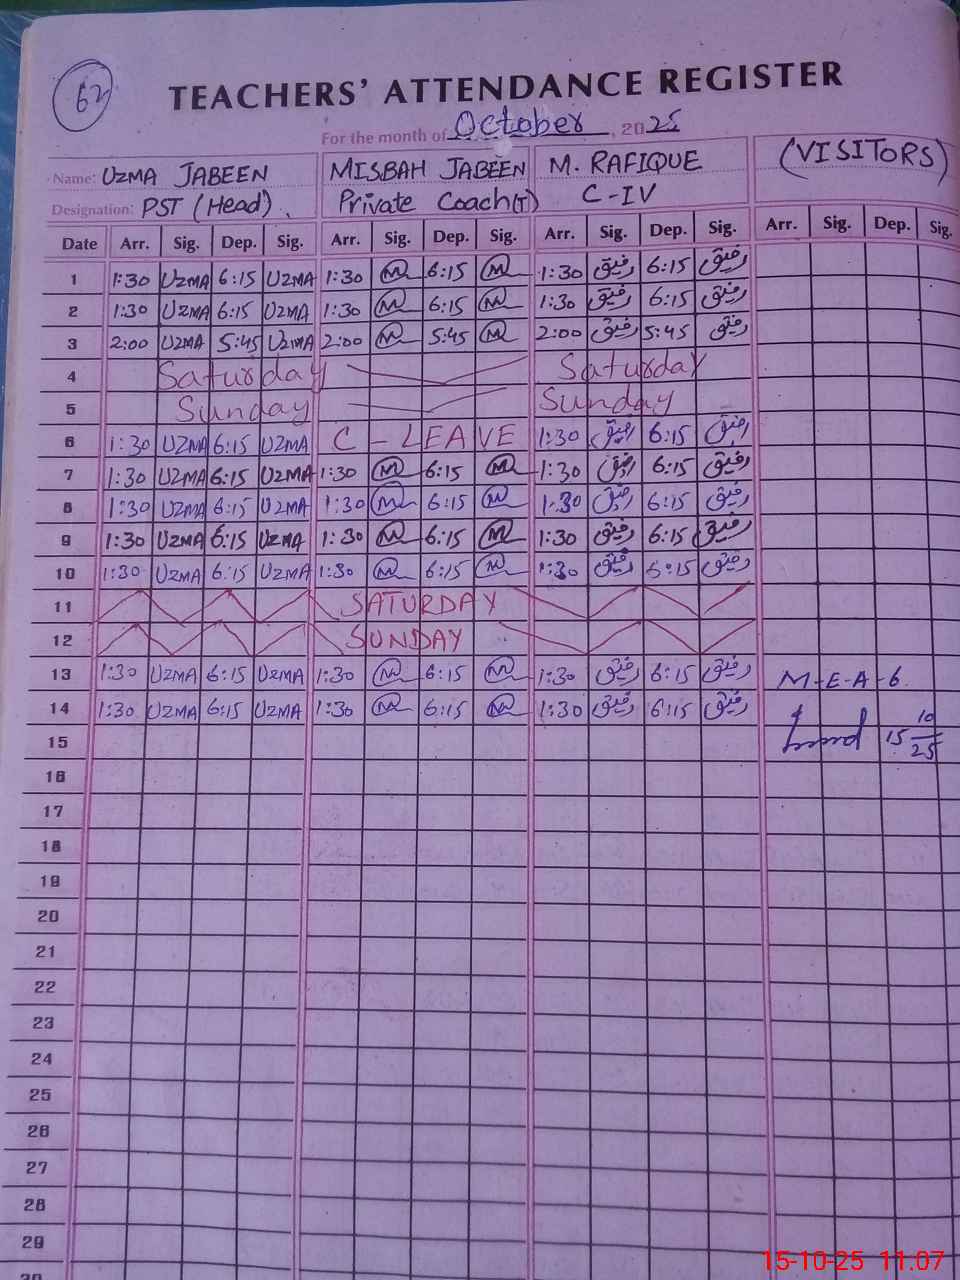 62
TEACHERS' ATTENDANCE REGISTER
For the month of October, 2025
Name: UZMA JABEEN MISBAH JABEEN M. RAFIQUE (VISITORS)
Designation: PST (Head). Private Coach(T) C-IV
Date Arr. Sig. Dep. Sig. Arr. Sig. Dep. Sig. Arr. Sig. Dep. Sig. Arr. Sig. Dep. Sig.
1 1:30 UZMA 6:15 UZMA 1:30 M 6:15 M 1:30 رفیق 6:15 رفیق
2 1:30 UZMA 6:15 UZMA 1:30 M 6:15 M 1:30 رفیق 6:15 رفیق
3 2:00 UZMA 5:45 UZMA 2:00 M 5:45 M 2:00 رفیق 5:45 رفیق
4 Saturday Saturday
5 Sunday Sunday
6 1:30 UZMA 6:15 UZMA C - LEAVE 1:30 رفیق 6:15 رفیق
7 1:30 UZMA 6:15 UZMA 1:30 M 6:15 M 1:30 رفیق 6:15 رفیق
8 1:30 UZMA 6:15 UZMA 1:30 M 6:15 M 1:30 رفیق 6:15 رفیق
9 1:30 UZMA 6:15 UZMA 1:30 M 6:15 M 1:30 رفیق 6:15 رفیق
10 1:30 UZMA 6:15 UZMA 1:30 M 6:15 M 1:30 رفیق 6:15 رفیق
11 SATURDAY
12 SUNDAY
13 1:30 UZMA 6:15 UZMA 1:30 M 6:15 M 1:30 رفیق 6:15 رفیق M-E-A-6
14 1:30 UZMA 6:15 UZMA 1:30 M 6:15 M 1:30 رفیق 6:15 رفیق
15 15 10/25
16
17
18
19
20
21
22
23
24
25
26
27
28
29
30
15-10-25 11.07